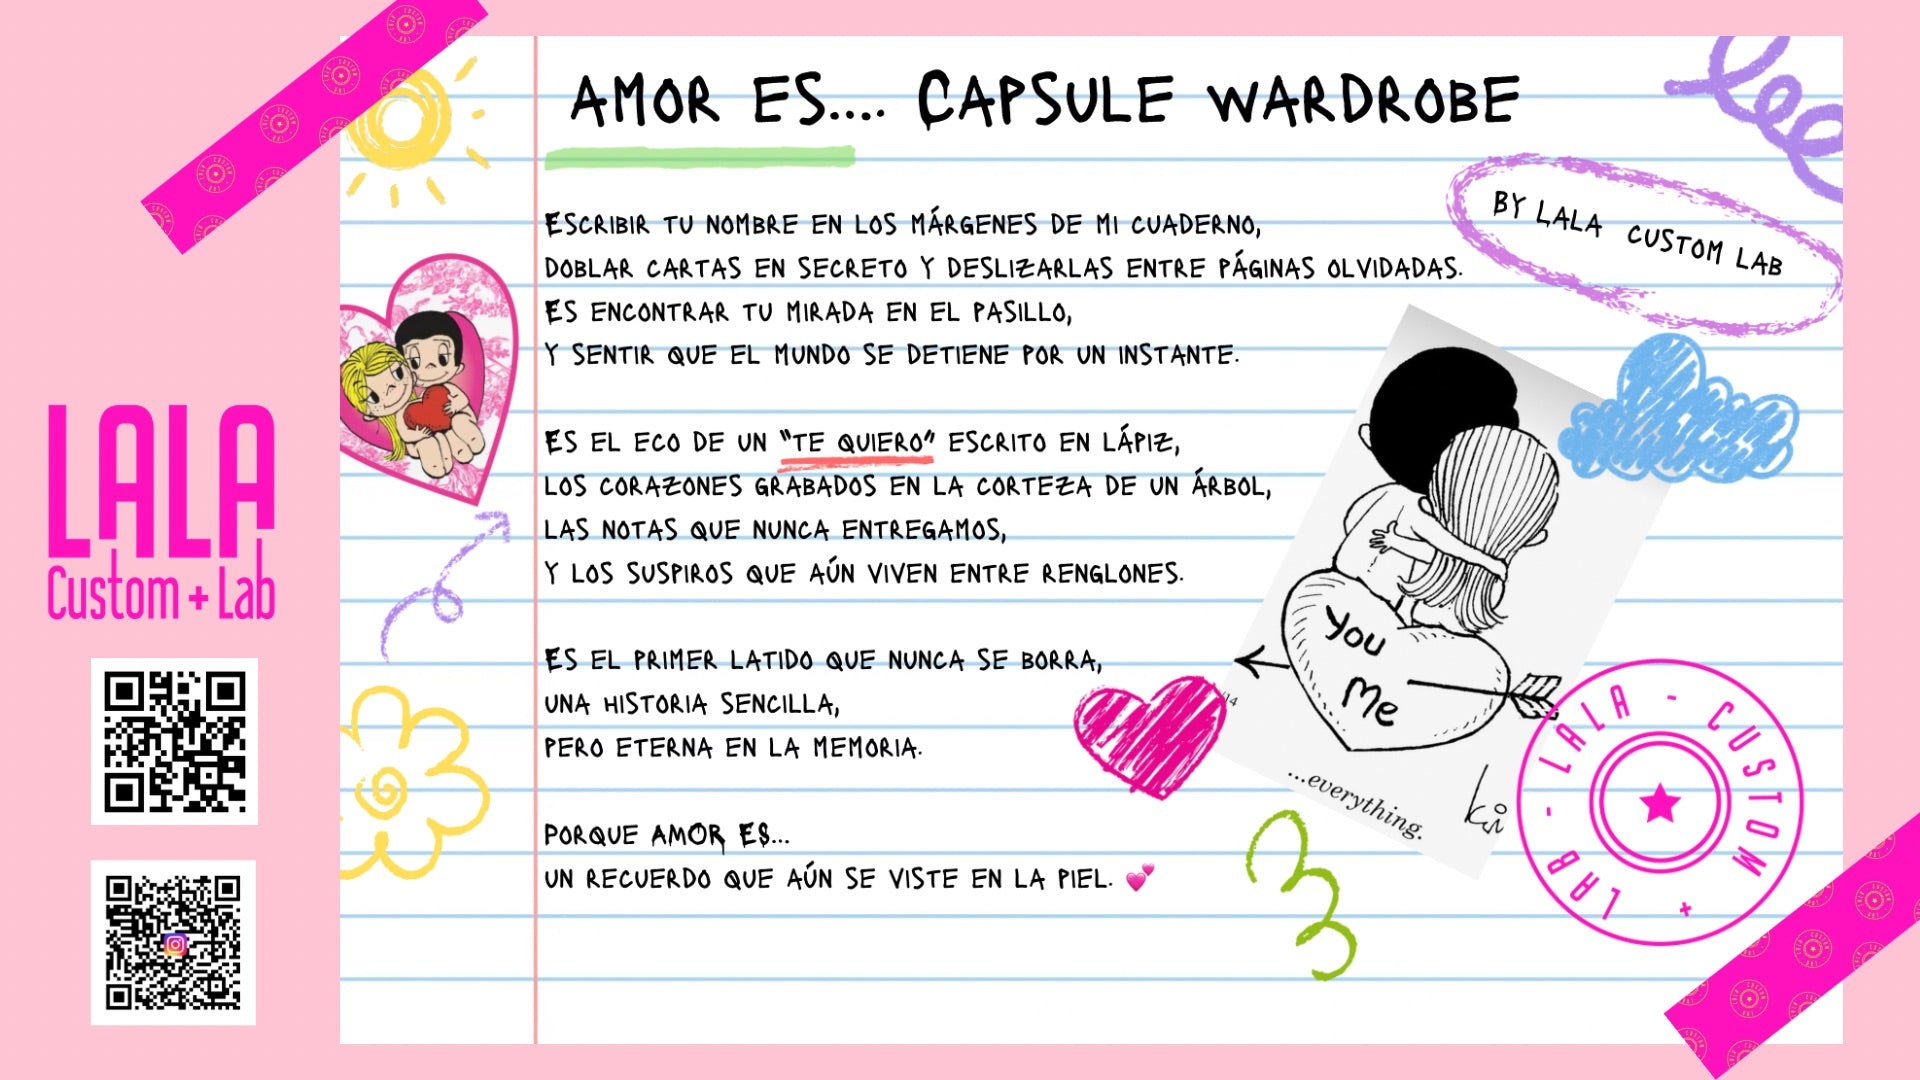 AMOR ES.... CAPSULE WARDROBE
BY LALA CUSTOM LAB
ESCRIBIR TU NOMBRE EN LOS MÁRGENES DE MI CUADERNO,
DOBLAR CARTAS EN SECRETO Y DESLIZARLAS ENTRE PÁGINAS OLVIDADAS.
ES ENCONTRAR TU MIRADA EN EL PASILLO,
Y SENTIR QUE EL MUNDO SE DETIENE POR UN INSTANTE.
ES EL ECO DE UN "TE QUIERO" ESCRITO EN LÁPIZ,
LOS CORAZONES GRABADOS EN LA CORTEZA DE UN ÁRBOL,
LAS NOTAS QUE NUNCA ENTREGAMOS,
Y LOS SUSPIROS QUE AÚN VIVEN ENTRE RENGLONES.
ES EL PRIMER LATIDO QUE NUNCA SE BORRA,
UNA HISTORIA SENCILLA,
PERO ETERNA EN LA MEMORIA.
PORQUE AMOR ES...
UN RECUERDO QUE AÚN SE VISTE EN LA PIEL. 💕
LALA
Custom + Lab
You
Me
...everything.
LALA - CUSTOM + LAB -